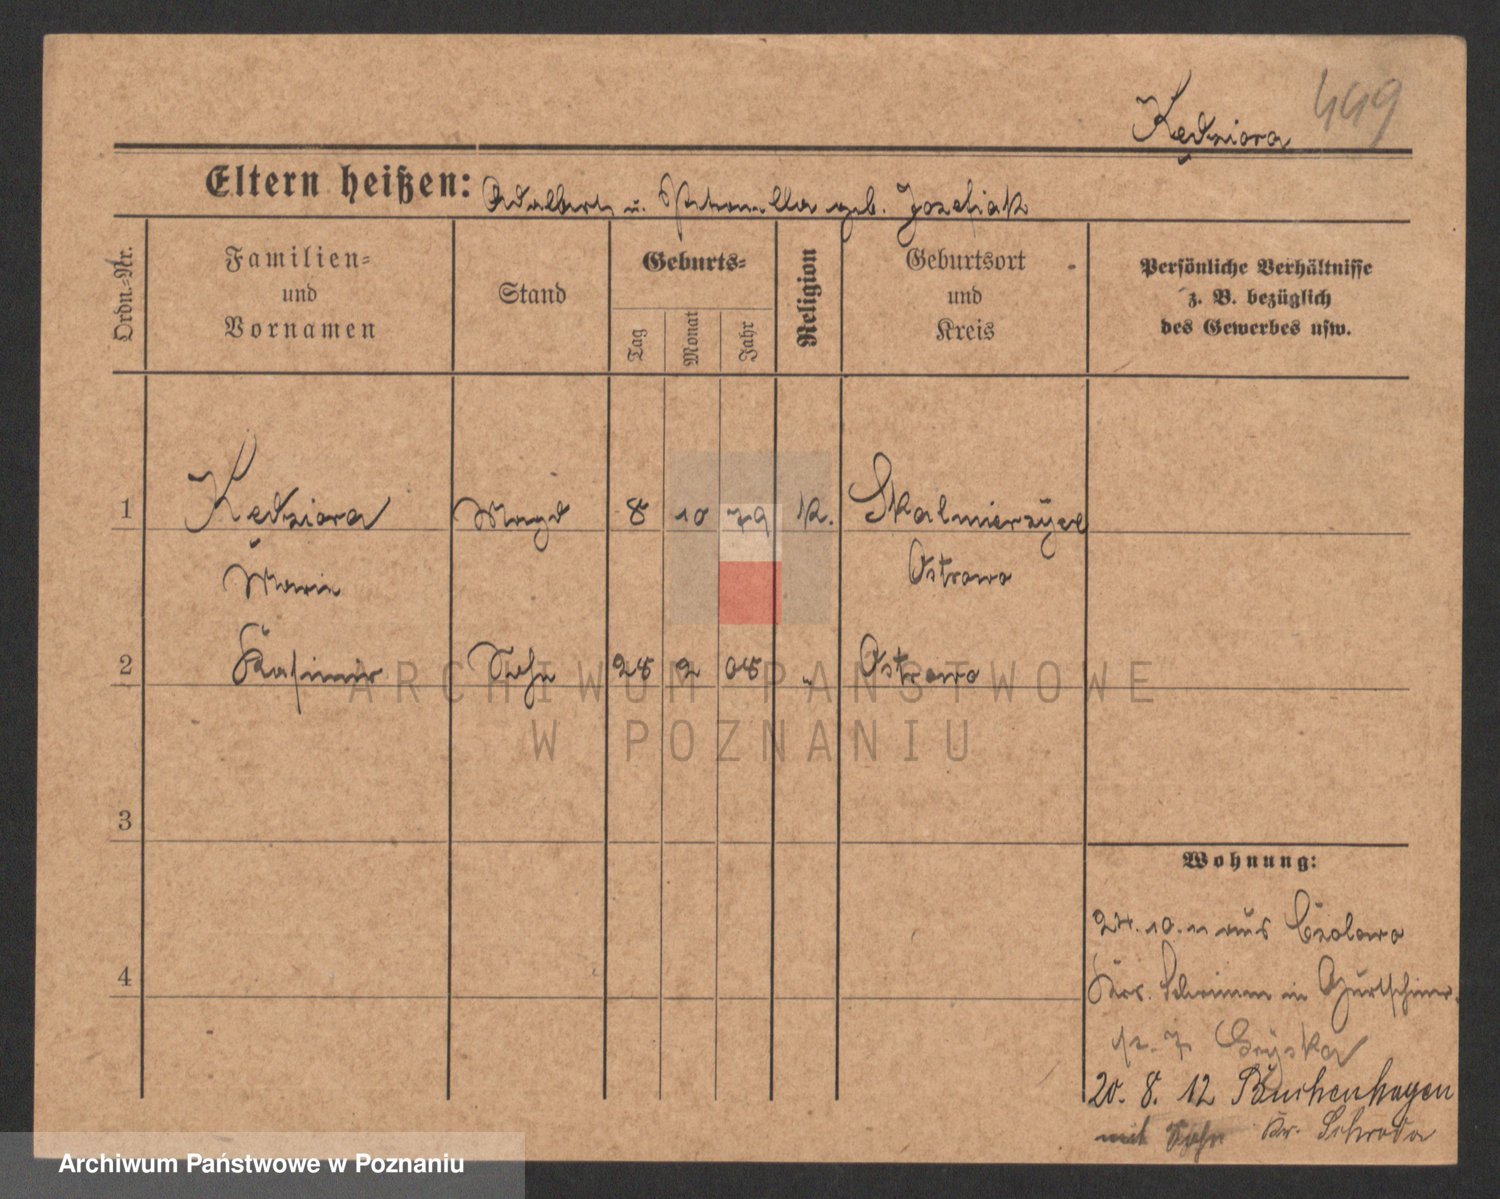 Kędziora 449
Eltern heißen: Adalbert u. Petronella geb. Jozefiak
Ordn.-Nr.
Familien-
und
Vornamen
Stand
Geburts-
Tag
Monat
Jahr
Religion
Geburtsort
und
Kreis
Persönliche Verhältnisse
z. B. bezüglich
des Gewerbes usw.
1 Kędziora Magd 8 10 79 K. Skalmierzyce
Marie Ostrowo
2 Kasimir Sohn 28 2 08 " Ostrowo
3
4
Wohnung:
24.10.11 aus Czolowo
Krs. Schrimm in Gurtschiner-
20. 8. 12 Buchenhagen
mit Sohn Kr. Schroda
ARCHIWUM PAŃSTWOWE
W POZNANIU
Archiwum Państwowe w Poznaniu